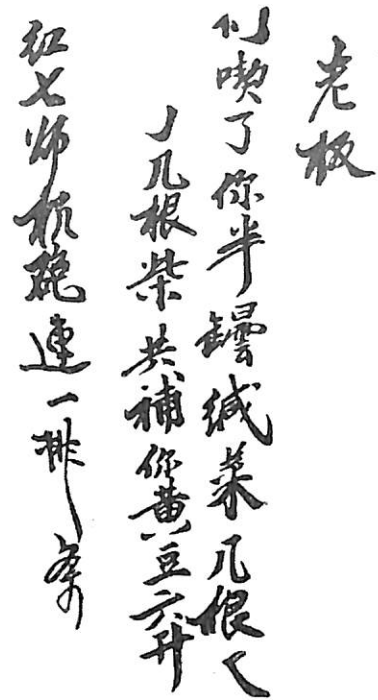 老板
们喫了你半罎缄菜几根
几根柴共補你黄豆六升
红七师机砲連一排条